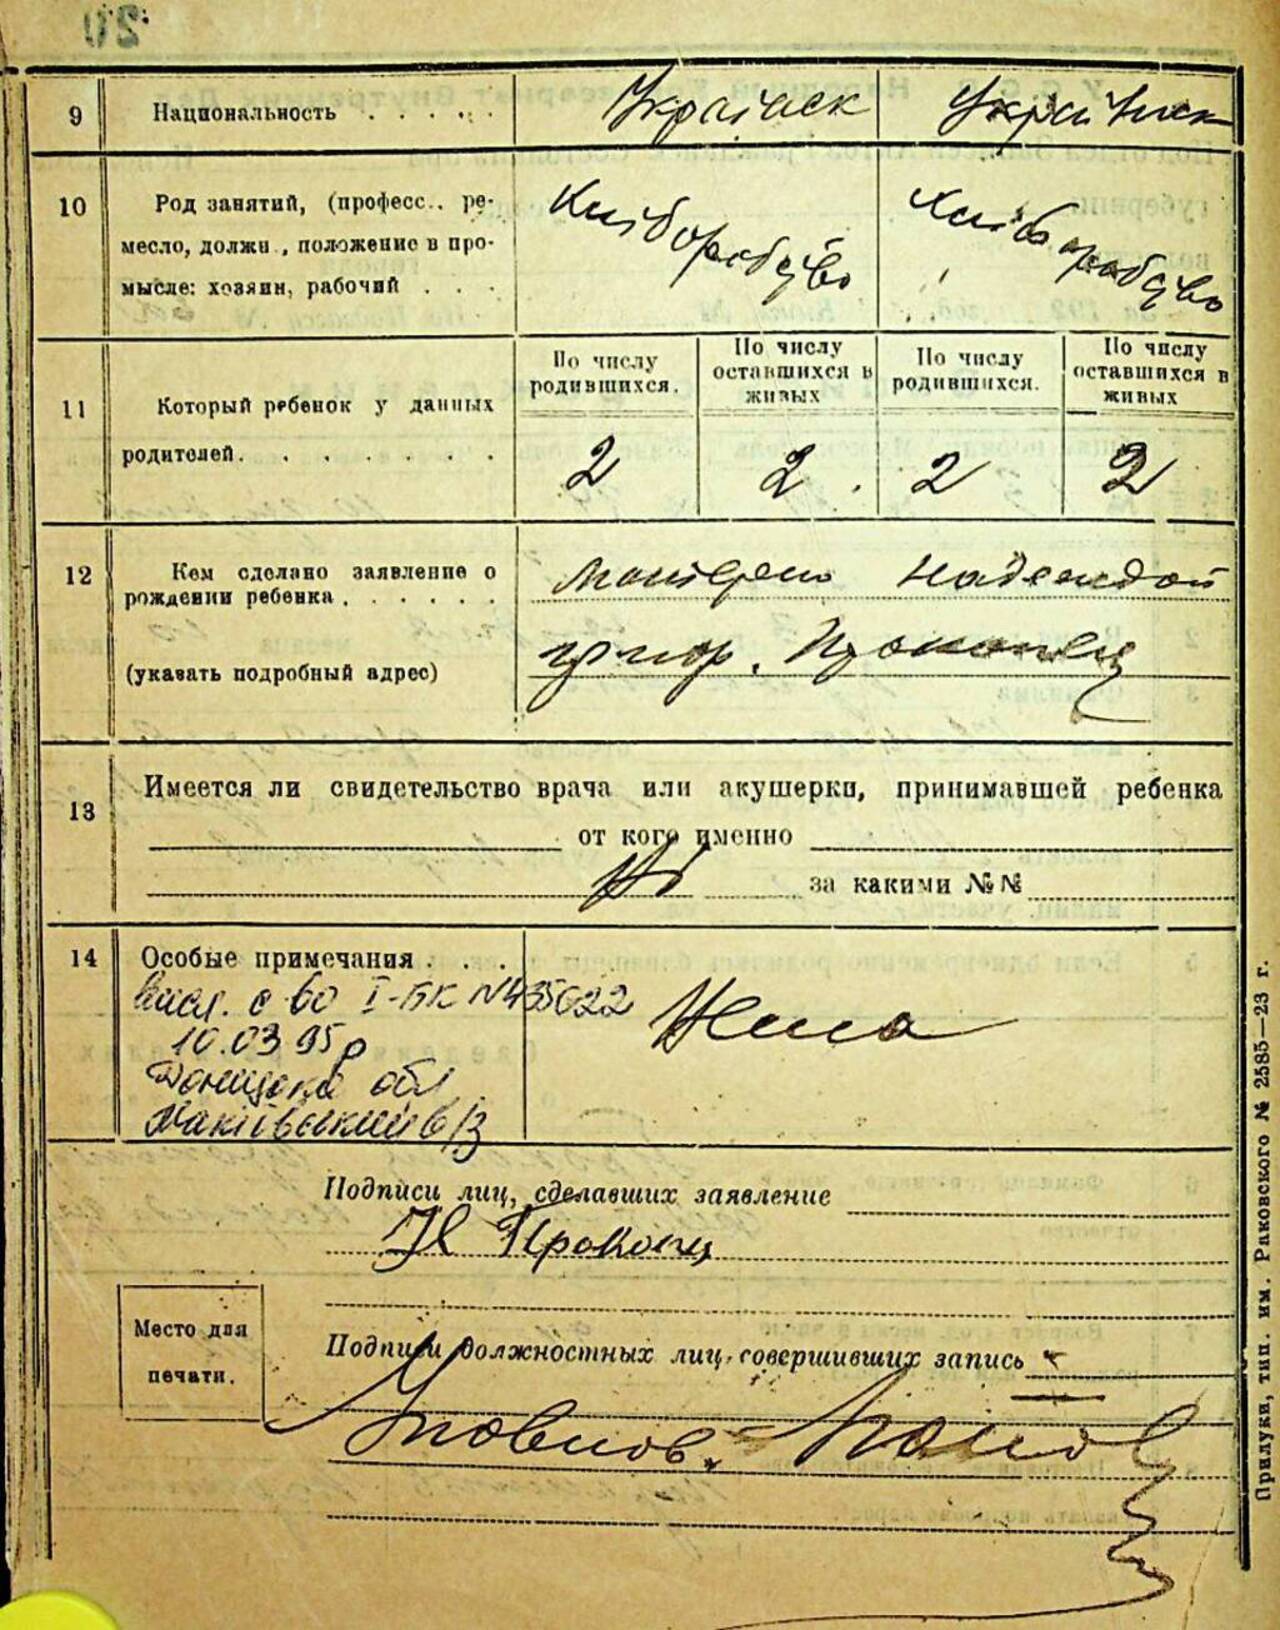 20
9 Национальность . . . . .
10 Род занятий, (професс.. ре-
месло, должн., положение в про-
мысле: хозяин, рабочий . . .
Хліборобство Хліборобство
11 Который ребенок у данных
родителей. . . . . . . .
По числу родившихся. По числу оставшихся в живых По числу родившихся. По числу оставшихся в живых
2 2 2 2
12 Кем сделано заявление о
рождении ребенка . . . . . .
(указать подробный адрес)
Матерью Надеждой
Григор. Прокопец
13 Имеется ли свидетельство врача или акушерки, принимавшей ребенка
от кого именно
за какими №№
14 Особые примечания . . .
с-во І-БК №435022
10.03.95р
Донецька обл
Макіївський в/В
Подписи лиц, сделавших заявление
Н Прокопец
Место для
печати.
Подписи должностных лиц, совершивших запись
Прилуки, тип. им. Раковского № 2585—23 г.